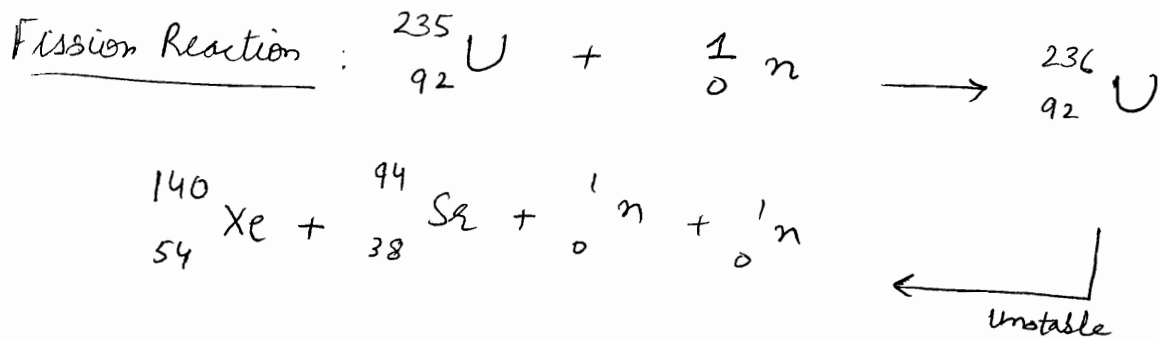 Fission Reaction : ²³⁵₉₂U + ¹₀n ⟶ ²³⁶₉₂U
¹⁴⁰₅₄Xe + ⁹⁴₃₈Sr + ¹₀n + ¹₀n ⟵
Unstable